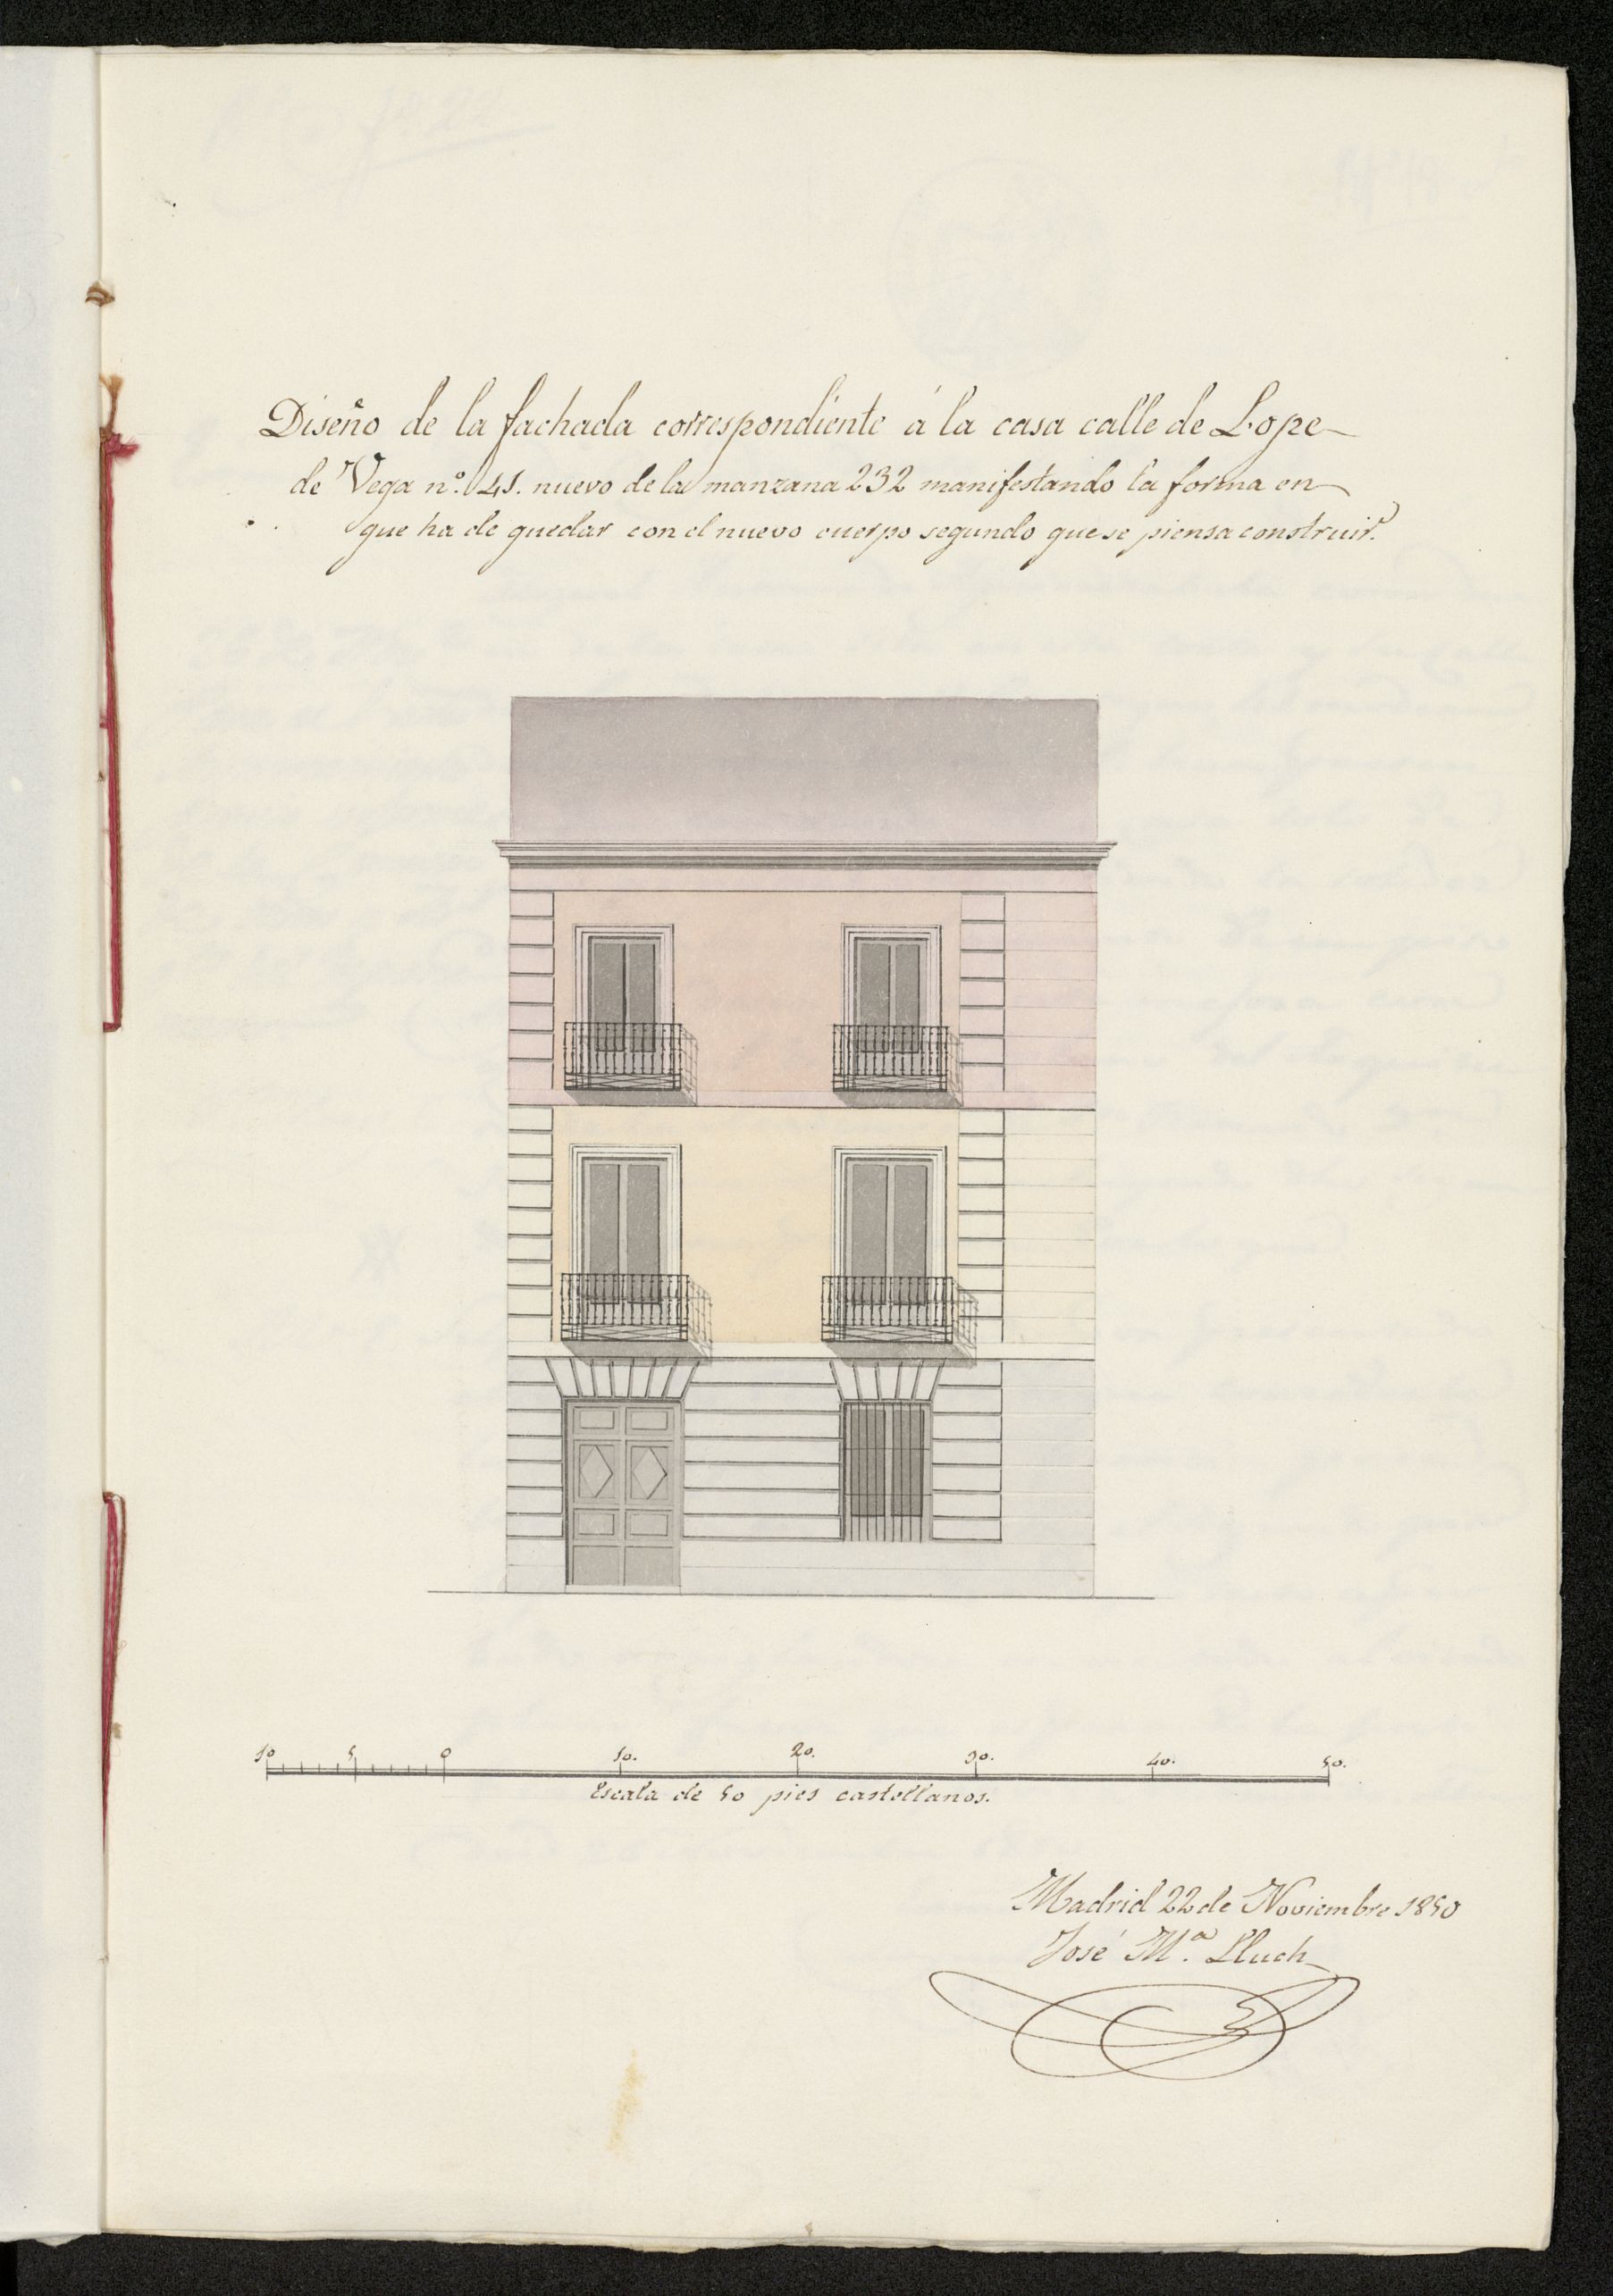 Diseño de la fachada correspondiente á la casa calle de Lope
de Vega nº. 41. nuevo de la manzana 232 manifestando la forma en
que ha de quedar con el nuevo cuerpo segundo que se piensa construir.
10 5 0 10. 20. 30. 40. 50.
Escala de 50 pies castellanos.
Madrid 22 de Noviembre 1850
José Mª. Lluch